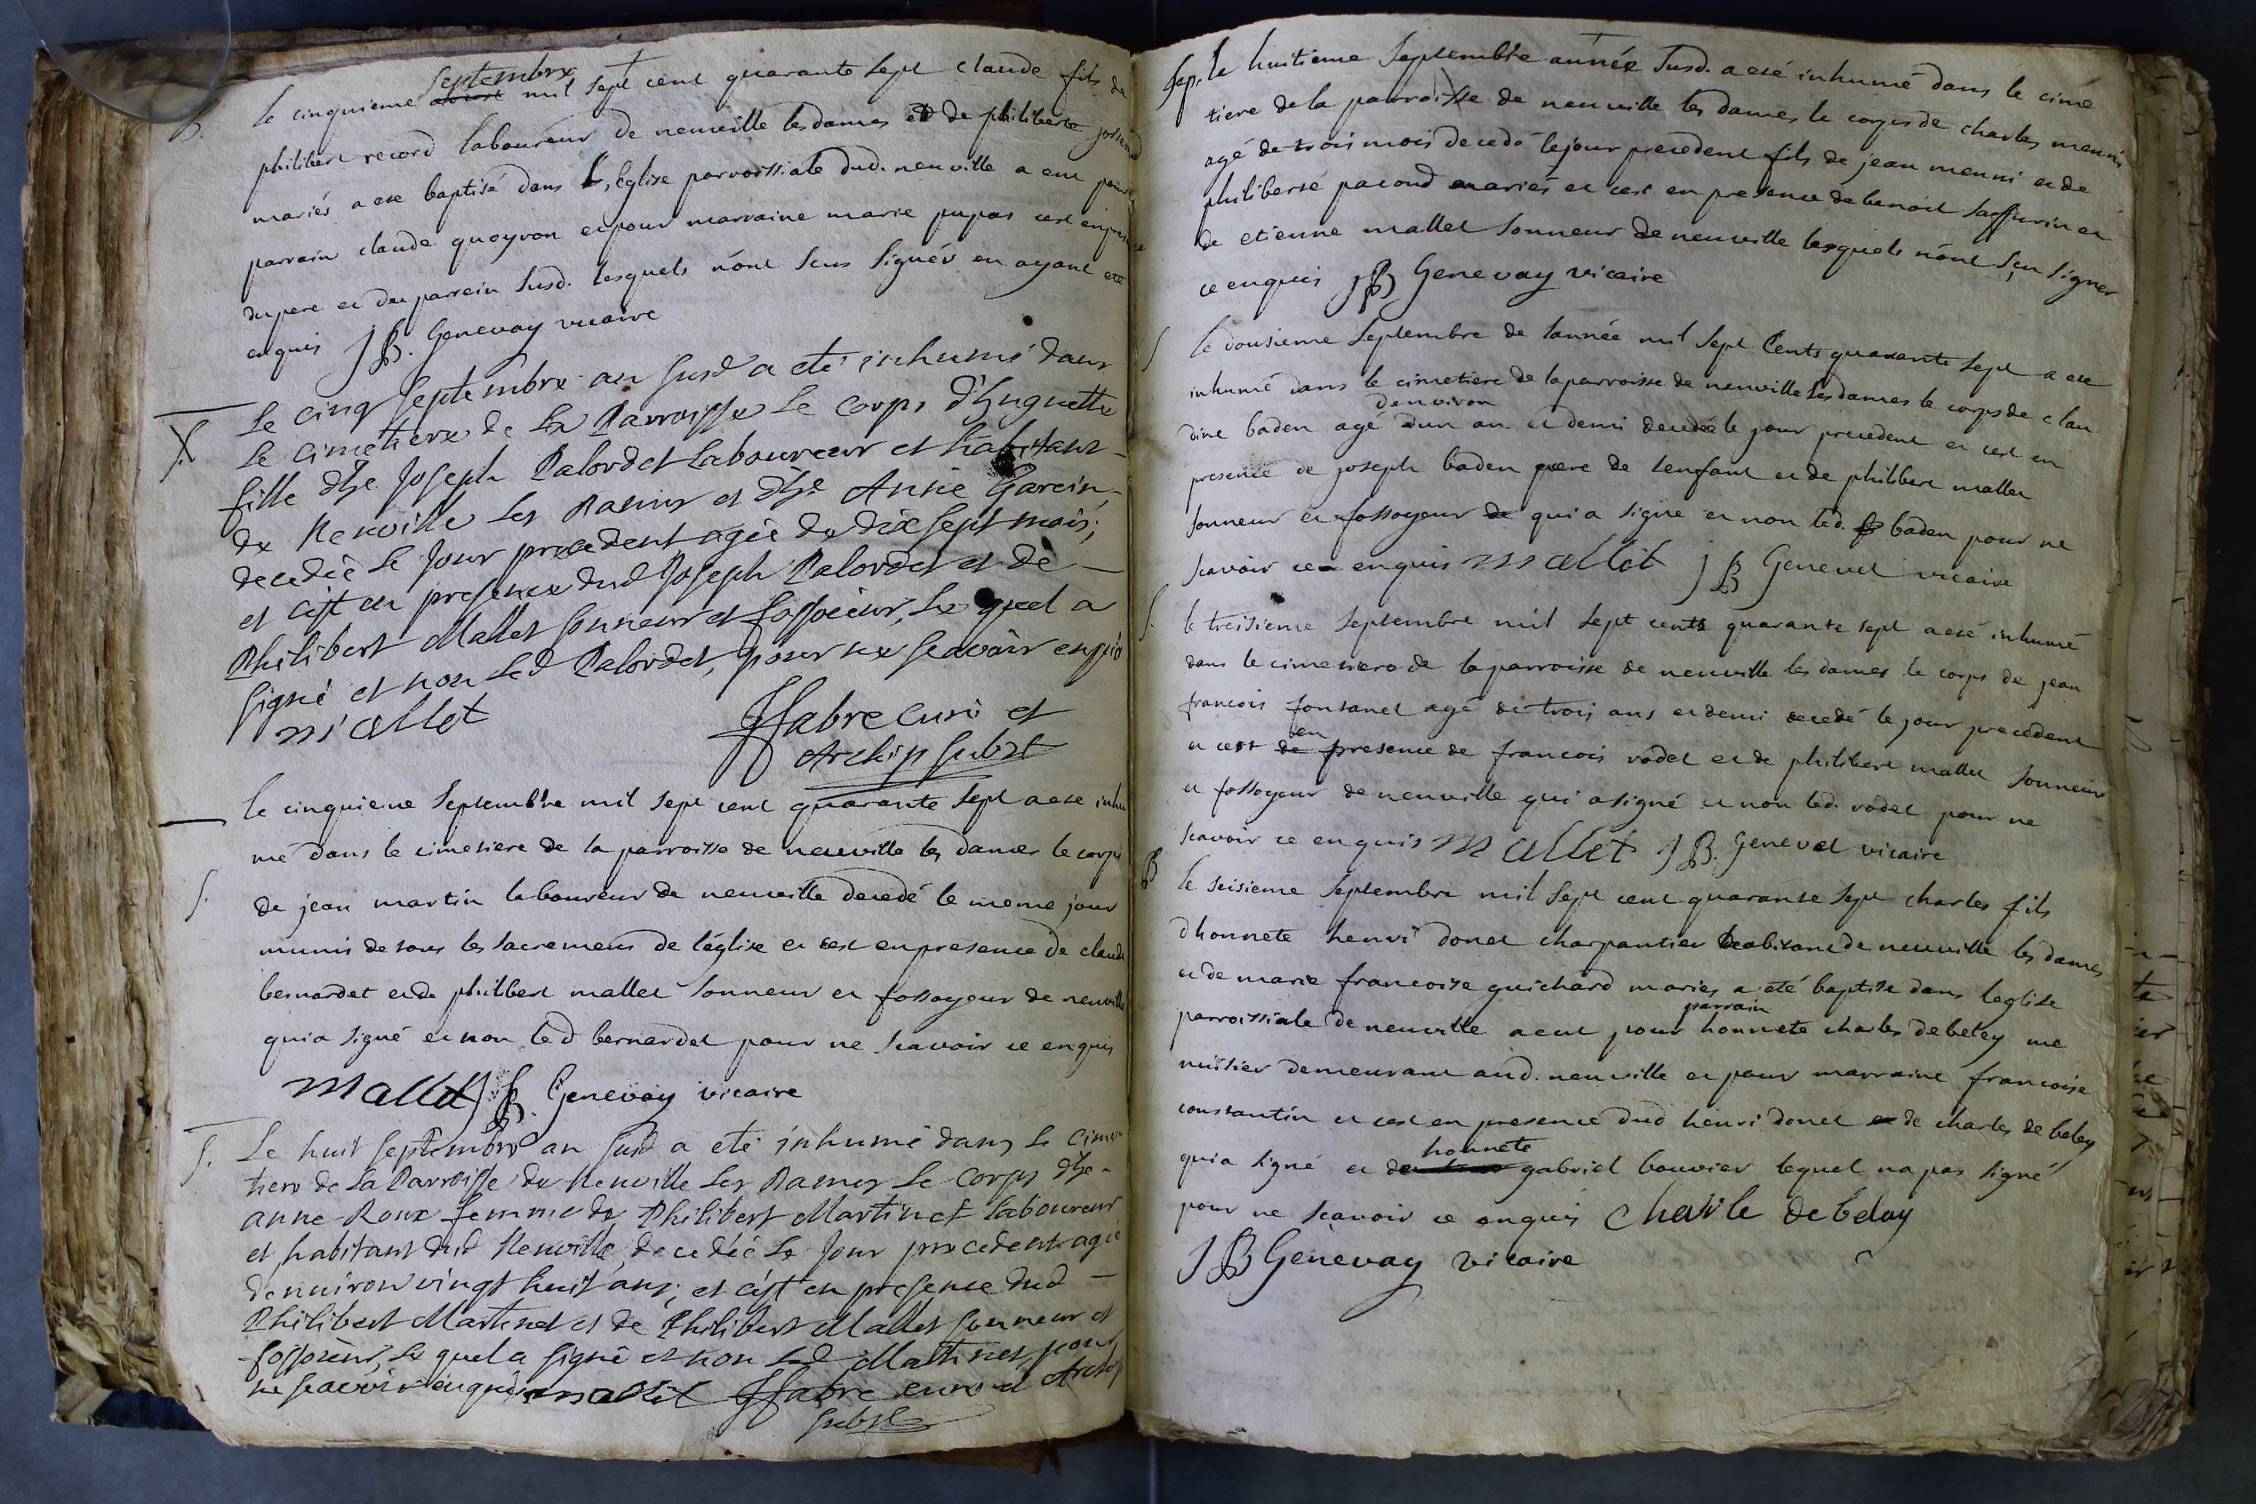 B.
Septembre
le cinquieme aoust mil sept cent quarante sept claude fils de
philibert record laboureur de neuville les dames et de philiberte
mariés a ete baptisé dans L'Eglise parroissiale dud. neuville a eut pour
parrain claude quoyron et pour marraine marie pupas cest en presence
du pere et du parrein susd. lesquels n'ont sceus signés en ayant ete
enquis JB. Genevay vicaire
S.
Le cinq septembre an susd a eté inhumé dans
Le cimetiere de La Parroisse Le corps d'huguette
fille d'he Joseph Palordet Laboureur et habitant
de Neuville Les Dames et d'he Anne Garein,
decedée Le Jour precedent agée de dix sept mois;
et c'est en presence dud Joseph Palordet et de
Philibert Mallet sonneur et fossoieur, Le quel a
signé et non Led Palordet, pour ne scavoir enquis
mallet JFabre curé et
Archip subst
le cinquieme septembre mil sept cent quarante sept a ete inhu
mé dans le cimetiere de la parroisse de neuville les dames le corps
S.
de jean martin laboureur de neuville decedé le meme jour
munis de tous les sacremens de l'église et cest en presence de claude
bernardet et de philibert mallet sonneur et fossoyeur de neuville
qui a signé et non led bernardet pour ne scavoir ce enquis
mallet JB. Genevay vicaire
S.
Le huit septembre an susd a eté inhumé dans Le cime
tiere de La Parroisse de Neuville Les Dames Le corps d'he
anne Roux femme de Philibert Martinet Laboureur
et habitant dud Neuville, decedée Le Jour precedent agée
denviron vingt huit ans; et c'est en presence dud
Philibert Martinet et de Philibert Mallet sonneur et
fossoieur, Le quel a signé et non Led Martinet, pour
ne scavoir enquis mallet JFabre curé et Archip
subst
Sep. le huitieme septembre année susd. a eté inhumé dans le cime
tiere de la parroisse de neuville les dames le corps de charles menni
agé de trois mois decedé le jour precedent fils de jean menni et de
philiberte pacoud mariés et cest en presence de benoit saffurin et
de etienne mallet sonneur de neuville lesquels n'ont sçu signer
ce enquis JB Genevay vicaire
S
le dousieme septembre de lannée mil sept Cents quarante sept a ete
inhumé dans le cimetiere de la parroisse de neuville les dames le corps de clau
denviron
dine baden agé dun an et demi decedé le jour precedent et cest en
presence de joseph baden pere de lenfant et de philibert mallet
sonneur et fossoyeur de qui a signe et non led. baden pour ne
scavoir ce enquis mallet JB Genevet vicaire
S.
le treisieme septembre mil sept cents quarante sept a eté inhumé
dans le cimetiere de la parroisse de neuville les dames le corps de jean
francois fontanel agé de trois ans et demi decedé le jour precedent
en
et cest de presence de francois rodet et de philibert mallet sonneur
et fossoyeur de neuville qui a signé et non led. rodet pour ne
scavoir ce enquis mallet JB. Genevet vicaire
B
le seisieme septembre mil sept cent quarante sept charles fils
dhonnete henri donet charpantier habitant de neuville les dames
et de marie francoise guichard mariés a été baptisé dans leglise
parrain
parroissiale de neuville a eut pour honnete charles debeley me
nuisier demeurant aud. neuville et pour marraine francoise
constantin et cest en presence dud henri donet et de charles de beley
honnete
qui a signé et de gabriel bouvier lequel na pas signé
pour ne scavoir ce enquis Charle debelay
JB Genevay vicaire